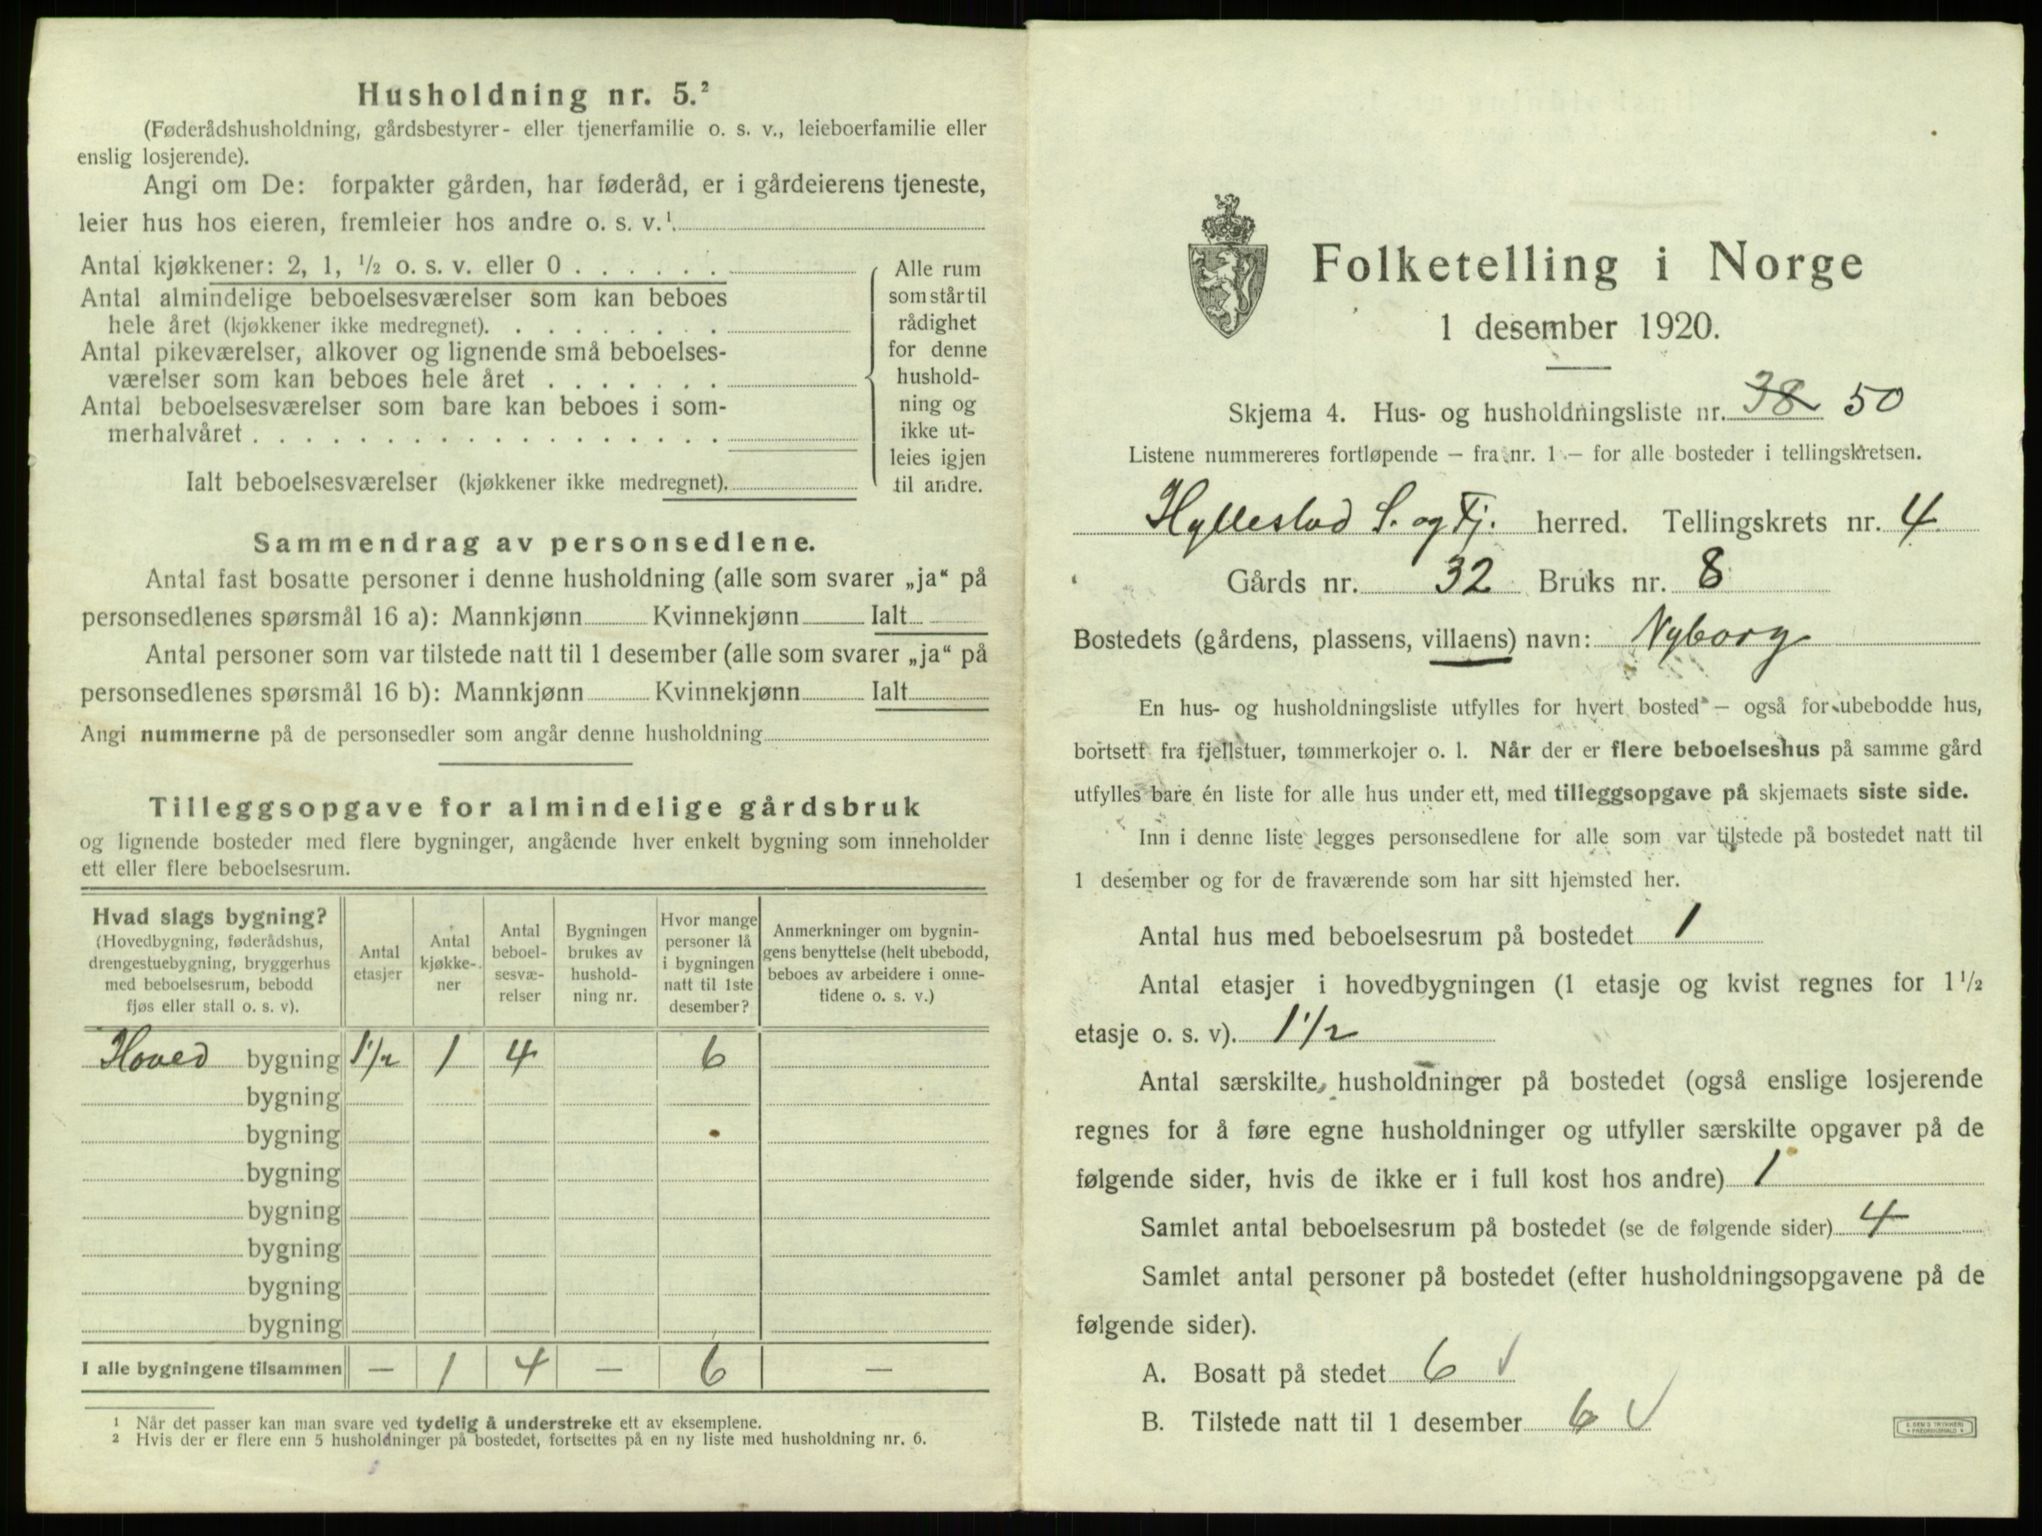 Husholdning nr. 5.²
(Føderådshusholdning, gårdsbestyrer- eller tjenerfamilie o. s. v., leieboerfamilie eller
enslig losjerende).
Angi om De: forpakter gården, har føderåd, er i gårdeierens tjeneste,
leier hus hos eieren, fremleier hos andre o. s. v.¹
Antal kjøkkener: 2, 1, ½ o. s. v. eller 0 . . . . . .
Antal almindelige beboelsesværelser som kan beboes
hele året (kjøkkener ikke medregnet). . . . . . . . .
Antal pikeværelser, alkover og lignende små beboelses-
værelser som kan beboes hele året . . . . . . .
Antal beboelsesværelser som bare kan beboes i som-
merhalvåret . . . . . . . . . . . . . . . . . .
Ialt beboelsesværelser (kjøkkener ikke medregnet).
Alle rum
som står til
rådighet
for denne
hushold-
ning og
ikke ut-
leies igjen
til andre.
Sammendrag av personsedlene.
Antal fast bosatte personer i denne husholdning (alle som svarer „ja“ på
personsedlenes spørsmål 16 a): Mannkjønn Kvinnekjønn Ialt
Antal personer som var tilstede natt til 1 desember (alle som svarer „ja“ på
personsedlenes spørsmål 16 b): Mannkjønn Kvinnekjønn Ialt
Angi nummerne på de personsedler som angår denne husholdning
Tilleggsopgave for almindelige gårdsbruk
og lignende bosteder med flere bygninger, angående hver enkelt bygning som inneholder
ett eller flere beboelsesrum.
Hvad slags bygning?
(Hovedbygning, føderådshus,
drengestuebygning, bryggerhus
med beboelsesrum, bebodd
fjøs eller stall o. s. v).
Antal
etasjer
Antal
kjøkke-
ner
Antal
beboel-
sesvæ-
relser
Bygningen
brukes av
hushold-
ning nr.
Hvor mange
personer lå
i bygningen
natt til 1ste
desember?
Anmerkninger om bygnin-
gens benyttelse (helt ubebodd,
beboes av arbeidere i onne-
tidene o. s. v.)
Hoved bygning 1½ 1 4 6
bygning
bygning
bygning
bygning
bygning
bygning
bygning
I alle bygningene tilsammen — 1 4 — 6 —
¹ Når det passer kan man svare ved tydelig å understreke ett av eksemplene.
² Hvis der er flere enn 5 husholdninger på bostedet, fortsettes på en ny liste med husholdning nr. 6.
Folketelling i Norge
1 desember 1920.
Skjema 4. Hus- og husholdningsliste nr. 38 50
Listene nummereres fortløpende — fra nr. 1 — for alle bosteder i tellingskretsen.
Hyllestad S. og Fj. herred. Tellingskrets nr. 4
Gårds nr. 32 Bruks nr. 8
Bostedets (gårdens, plassens, villaens) navn: Nyborg
En hus- og husholdningsliste utfylles for hvert bosted — også for ubebodde hus,
bortsett fra fjellstuer, tømmerkojer o. l. Når der er flere beboelseshus på samme gård
utfylles bare én liste for alle hus under ett, med tilleggsopgave på skjemaets siste side.
Inn i denne liste legges personsedlene for alle som var tilstede på bostedet natt til
1 desember og for de fraværende som har sitt hjemsted her.
Antal hus med beboelsesrum på bostedet 1
Antal etasjer i hovedbygningen (1 etasje og kvist regnes for 1½
etasje o. s. v). 1½
Antal særskilte husholdninger på bostedet (også enslige losjerende
regnes for å føre egne husholdninger og utfyller særskilte opgaver på de
følgende sider, hvis de ikke er i full kost hos andre) 1
Samlet antal beboelsesrum på bostedet (se de følgende sider) 4
Samlet antal personer på bostedet (efter husholdningsopgavene på de
følgende sider).
A. Bosatt på stedet 6 √
B. Tilstede natt til 1 desember 6 √